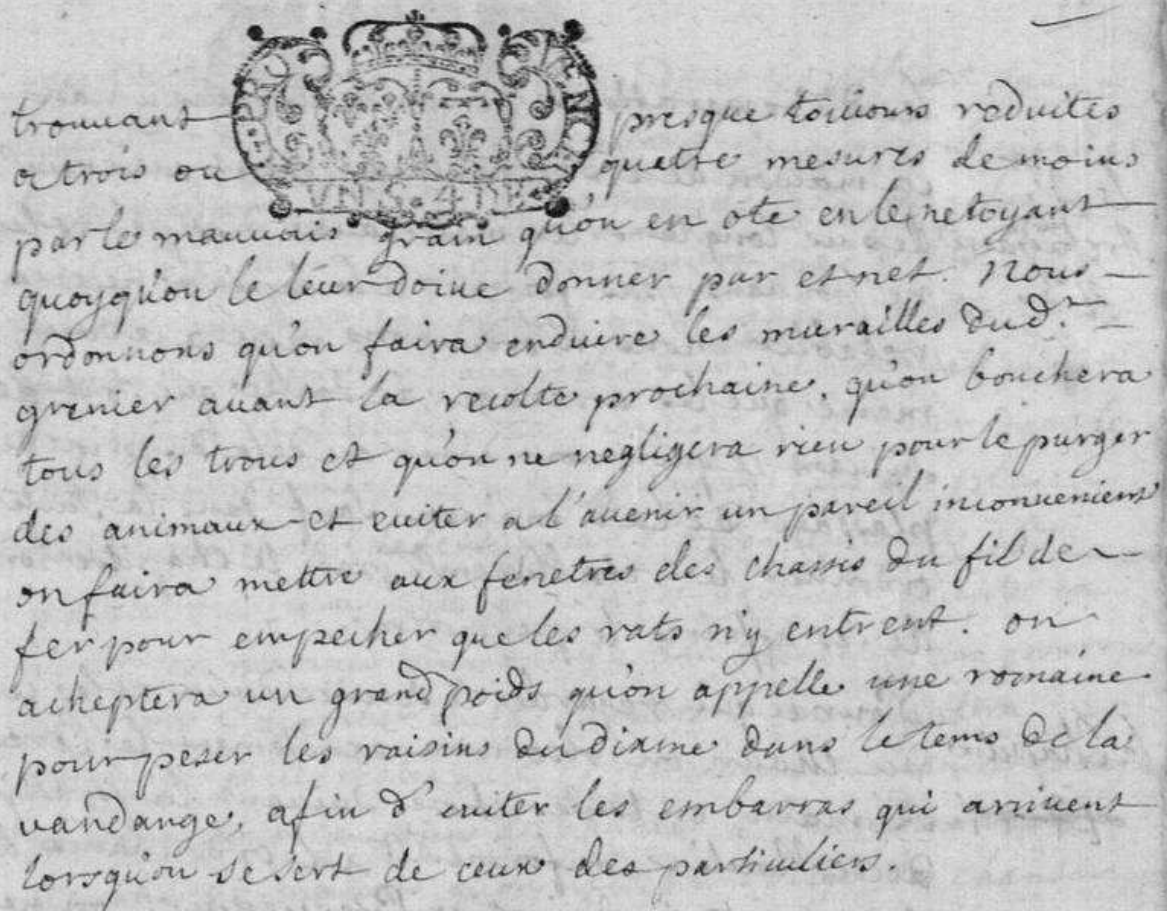 trouuant presque toiuours reduites
a trois ou quatre mesures de moins
par le mauuais grain qu'on en ote en le netoyant
quoyqu'on le leur doiue donner pur et net. Nous
ordonnons qu'on faira enduire les murailles dud.t
grenier auant la recolte prochaine, qu'on bouchera
tous les trous et qu'on ne negligera rien pour le purger
des animaux et euiter a l'auenir un pareil inconuenient
on faira mettre aux fenetres des chassis du fil de
fer pour empecher que les rats n'y entrent. on
acheptera un grand poids qu'on appelle une romaine
pour pezer les raisins du dixme dans le tems de la
vandange, afin d'euiter les embarras qui arriuent
lorsqu'on se sert de ceux des particuliers.
VN S. 4 DE